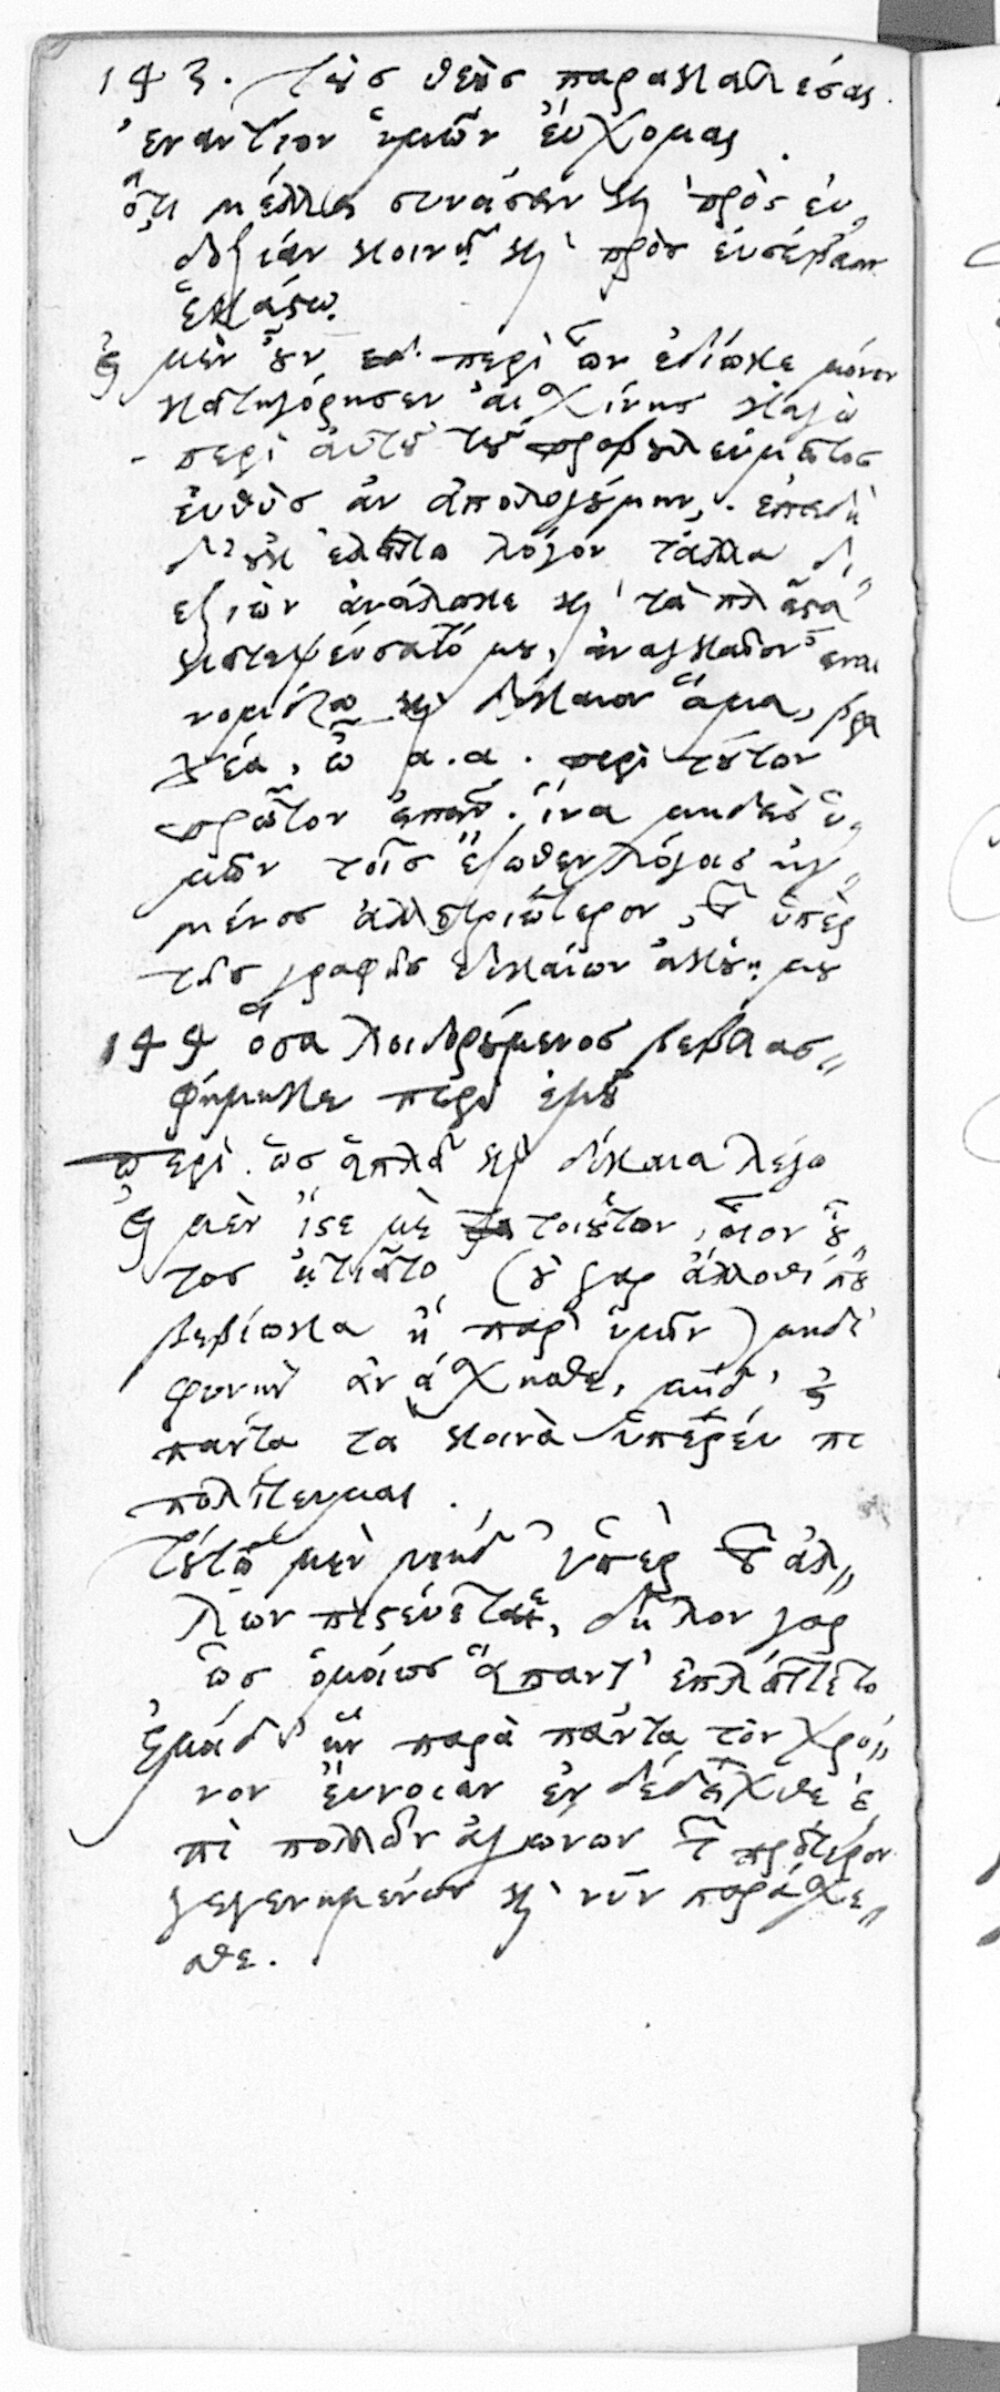 143. τοὺς θεοὺς παρακαλέσας
ἐναντίον ὑμῶν εὔχομαι.
ὅ,τι μέλλει συνοίσειν καὶ πρὸς εὐ„
δοξίαν κοινῇ καὶ πρὸς εὐσέβειαν
ἑκάστῳ.
εἰ μὲν οὖν περὶ ὧν ἐδίωκε μόνον
κατηγόρησεν αἰσχίνης κἀγὼ
περὶ αὐτοῦ τοῦ προβουλεύματος
εὐθὺς ἂν ἀπελογούμην. ἐπειδὴ
δ' οὐκ ἐλάττω λόγον τἆλλα δι„
εξιὼν ἀνάλωκε καὶ τὰ πλεῖστα
κατεψεύσατό μου, ἀναγκαῖον εἶναι
νομίζω καὶ δίκαιον ἅμα, βρα
χέα, ὦ α. α. περὶ τούτων
πρῶτον εἰπεῖν. ἵνα μηδεὶς ὑ„
μῶν τοῖς ἔξωθεν λόγοις ἠγ„
μένος ἀλλοτριώτερον, τῶν ὑπὲρ
τῆς γραφῆς δικαίων ἀκούῃ μου
144 ὅσα λοιδορούμενος βεβλασ„
φήμηκε περὶ ἐμοῦ
περὶ. ὡς ἁπλᾶ καὶ δίκαια λέγω
εἰ μὲν ἴστε με τοιοῦτον, οἷον οὗ„
τος ᾐτιᾶτο (οὐ γὰρ ἄλλοθί που
βεβίωκα ἢ παρ' ὑμῖν) μηδὲ
φωνὴν ἀνάσχησθε, μηδ' εἰ
πάντα τὰ κοινὰ ὑπέρευ πε
πολίτευμαι.
τούτῳ μὲν μηδ' ὑπὲρ τῶν ἄλ„
λων πιστεύετε, δῆλον γὰρ
ὡς ὁμοίως ἅπαντ' ἐπλάττετο
ἐμοὶ δ' ἣν παρὰ πάντα τὸν χρό„
νον εὔνοιαν ἐνδέδειχθε ἐ„
πὶ πολλῶν ἀγώνων τῶν πρότερον
γεγενημένων καὶ νῦν παράσχε„
σθε.